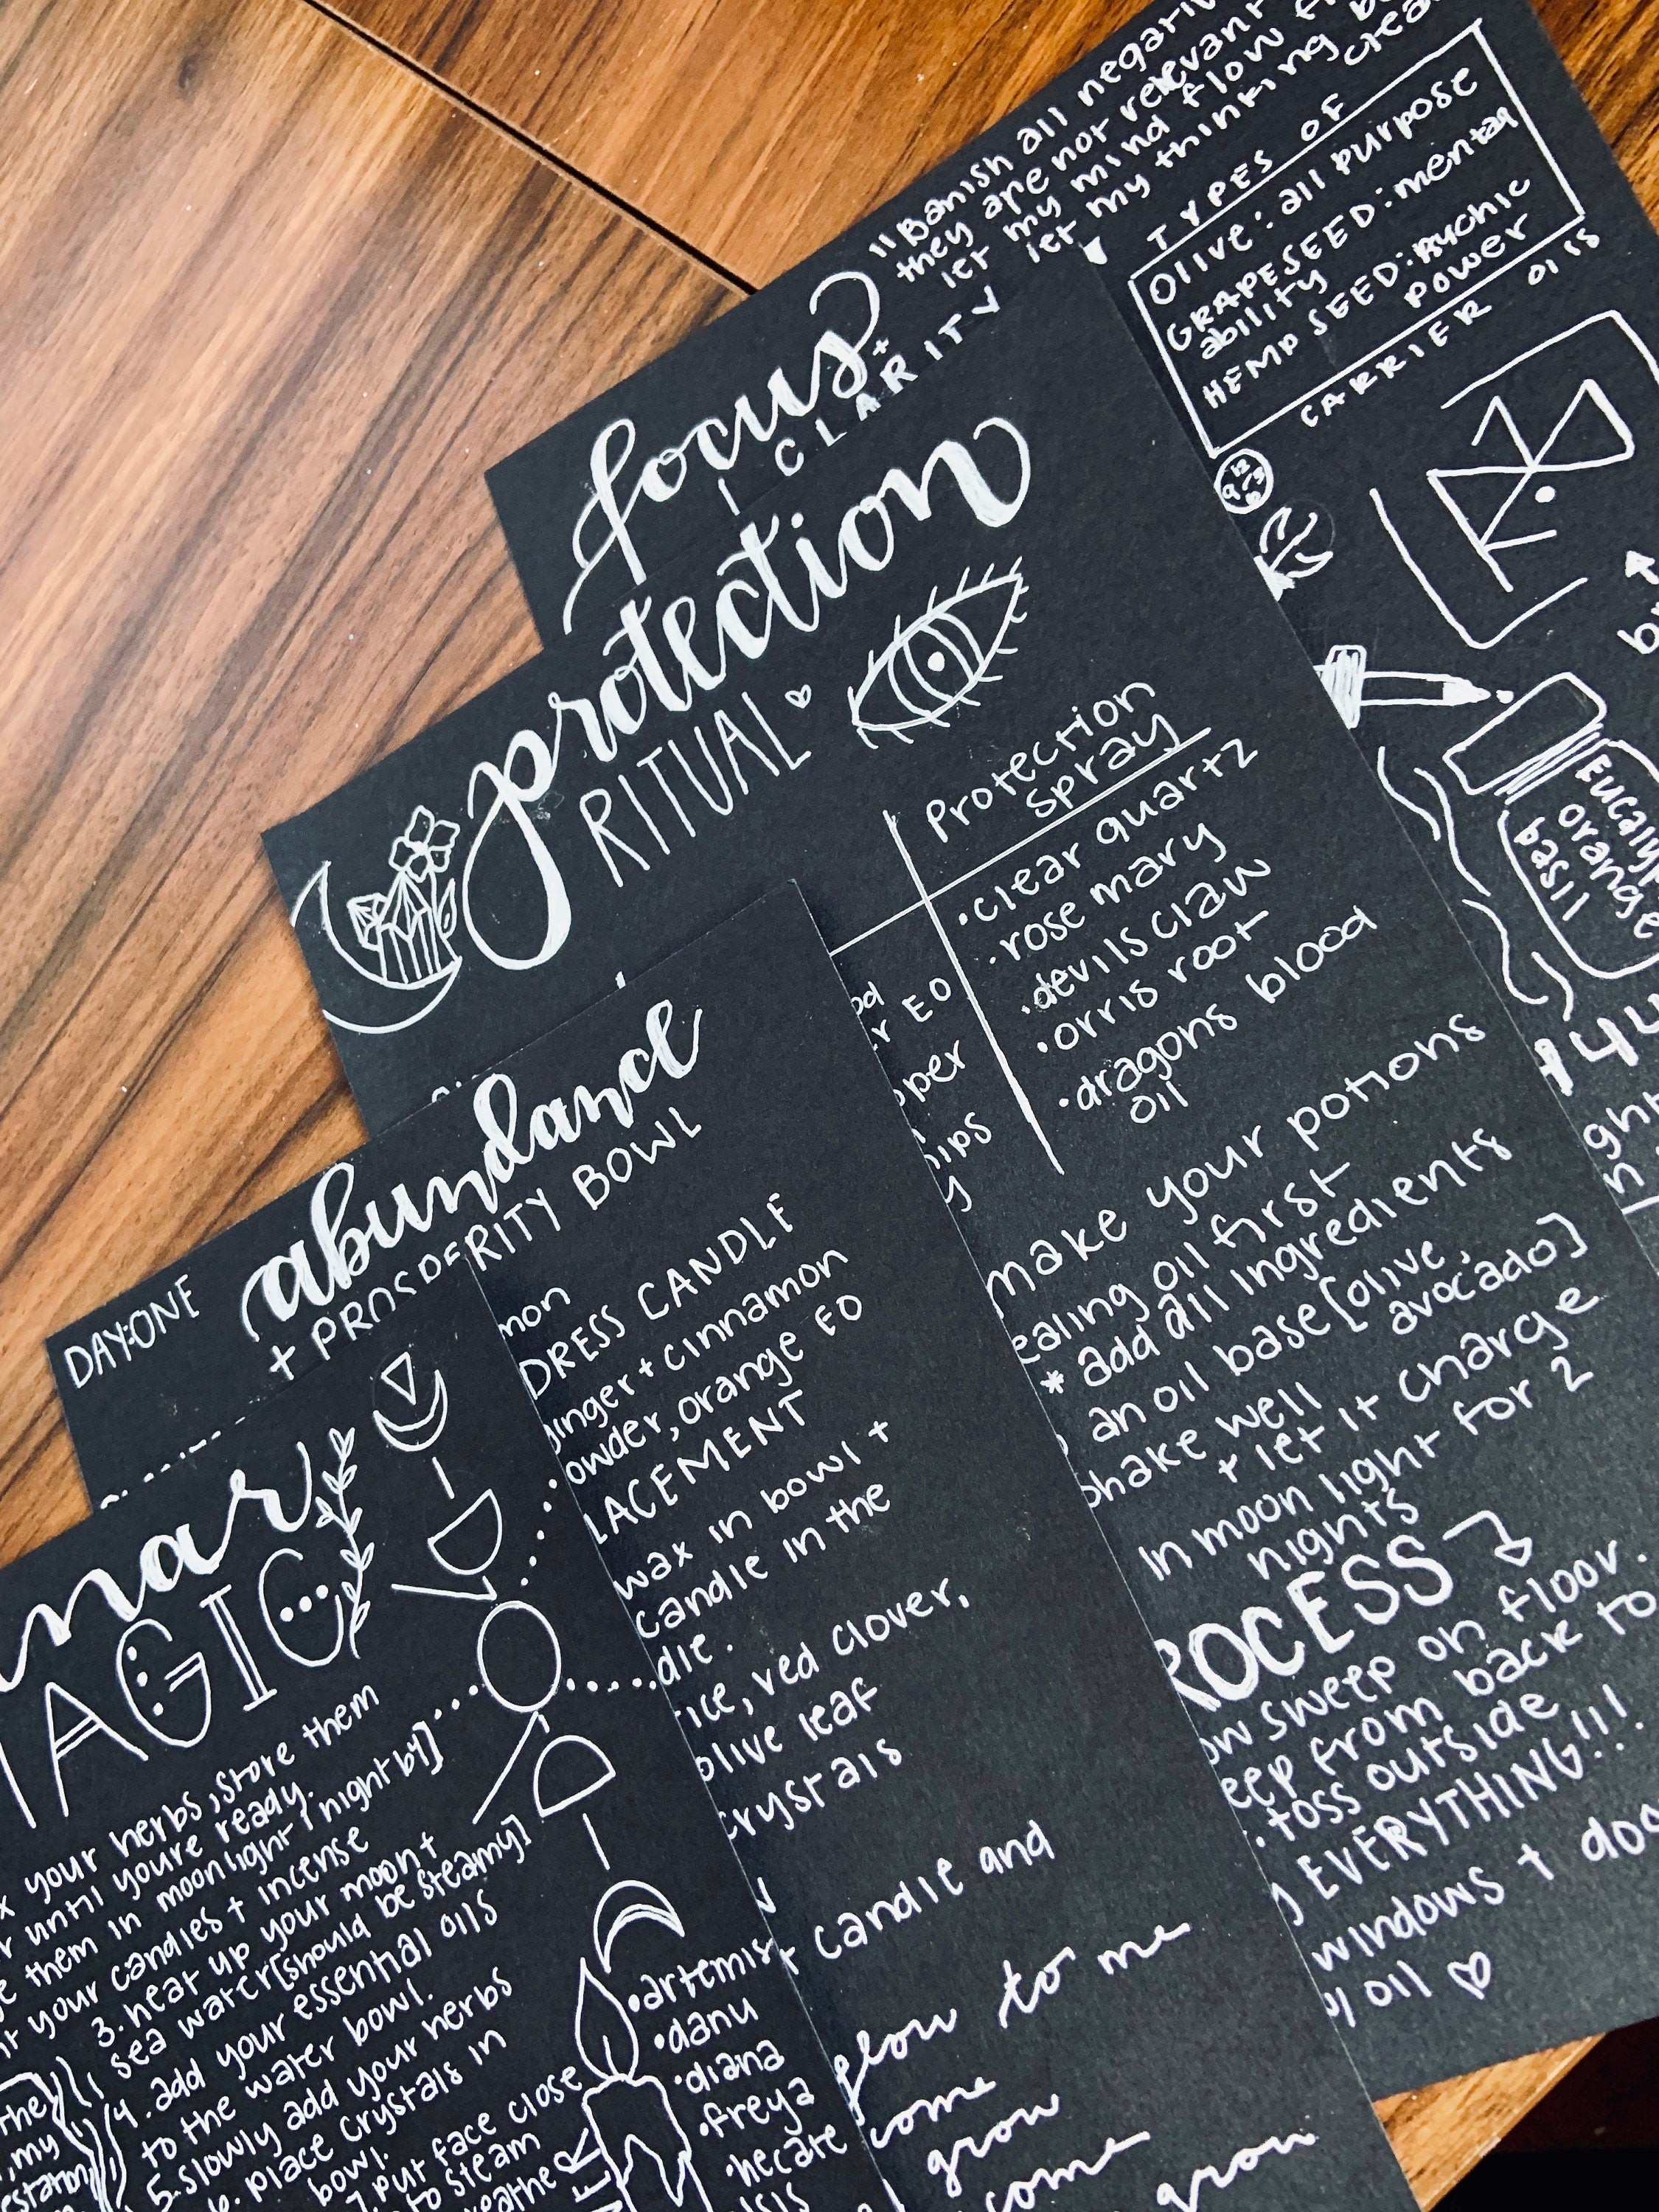 "Banish all
they are not relevant
let my mind flow
let my thinking
TYPES OF
Olive: all purpose
GRAPESEED: mental
ability
HEMP SEED: Psychic
power
CARRIER OILS
focus
+
CLARITY
12
9 3
orange
basil
protection
RITUAL
Protection
Spray
• clear quartz
• rose mary
• devils claw
• orris root
• dragons blood
oil
EO
make your potions
oil first
* add all ingredients
an oil base [olive,
avocado]
shake well
+ let it charge
in moon light for 2
nights
PROCESS
sweep on floor.
from back to
. toss outside
EVERYTHING!!!
windows +
oil
DAY:ONE
abundance
+ PROSPERITY BOWL
DRESS CANDLE
ginger + cinnamon
powder, orange EO
PLACEMENT
wax in bowl +
candle in the
red clover,
olive leaf
crystals
candle and
flow to me
come
grow
come
grow
MAGIC
your herbs, store them
until youre ready.
them in moonlight [night by]
your candles + incense
3. heat up your moon +
sea water [should be steamy]
4. add your essential oils
to the water bowl.
5. slowly add your herbs
6. place crystals in
bowl.
7. put face close
to steam
breathe
my
• danu
• diana
• freya
• hecate